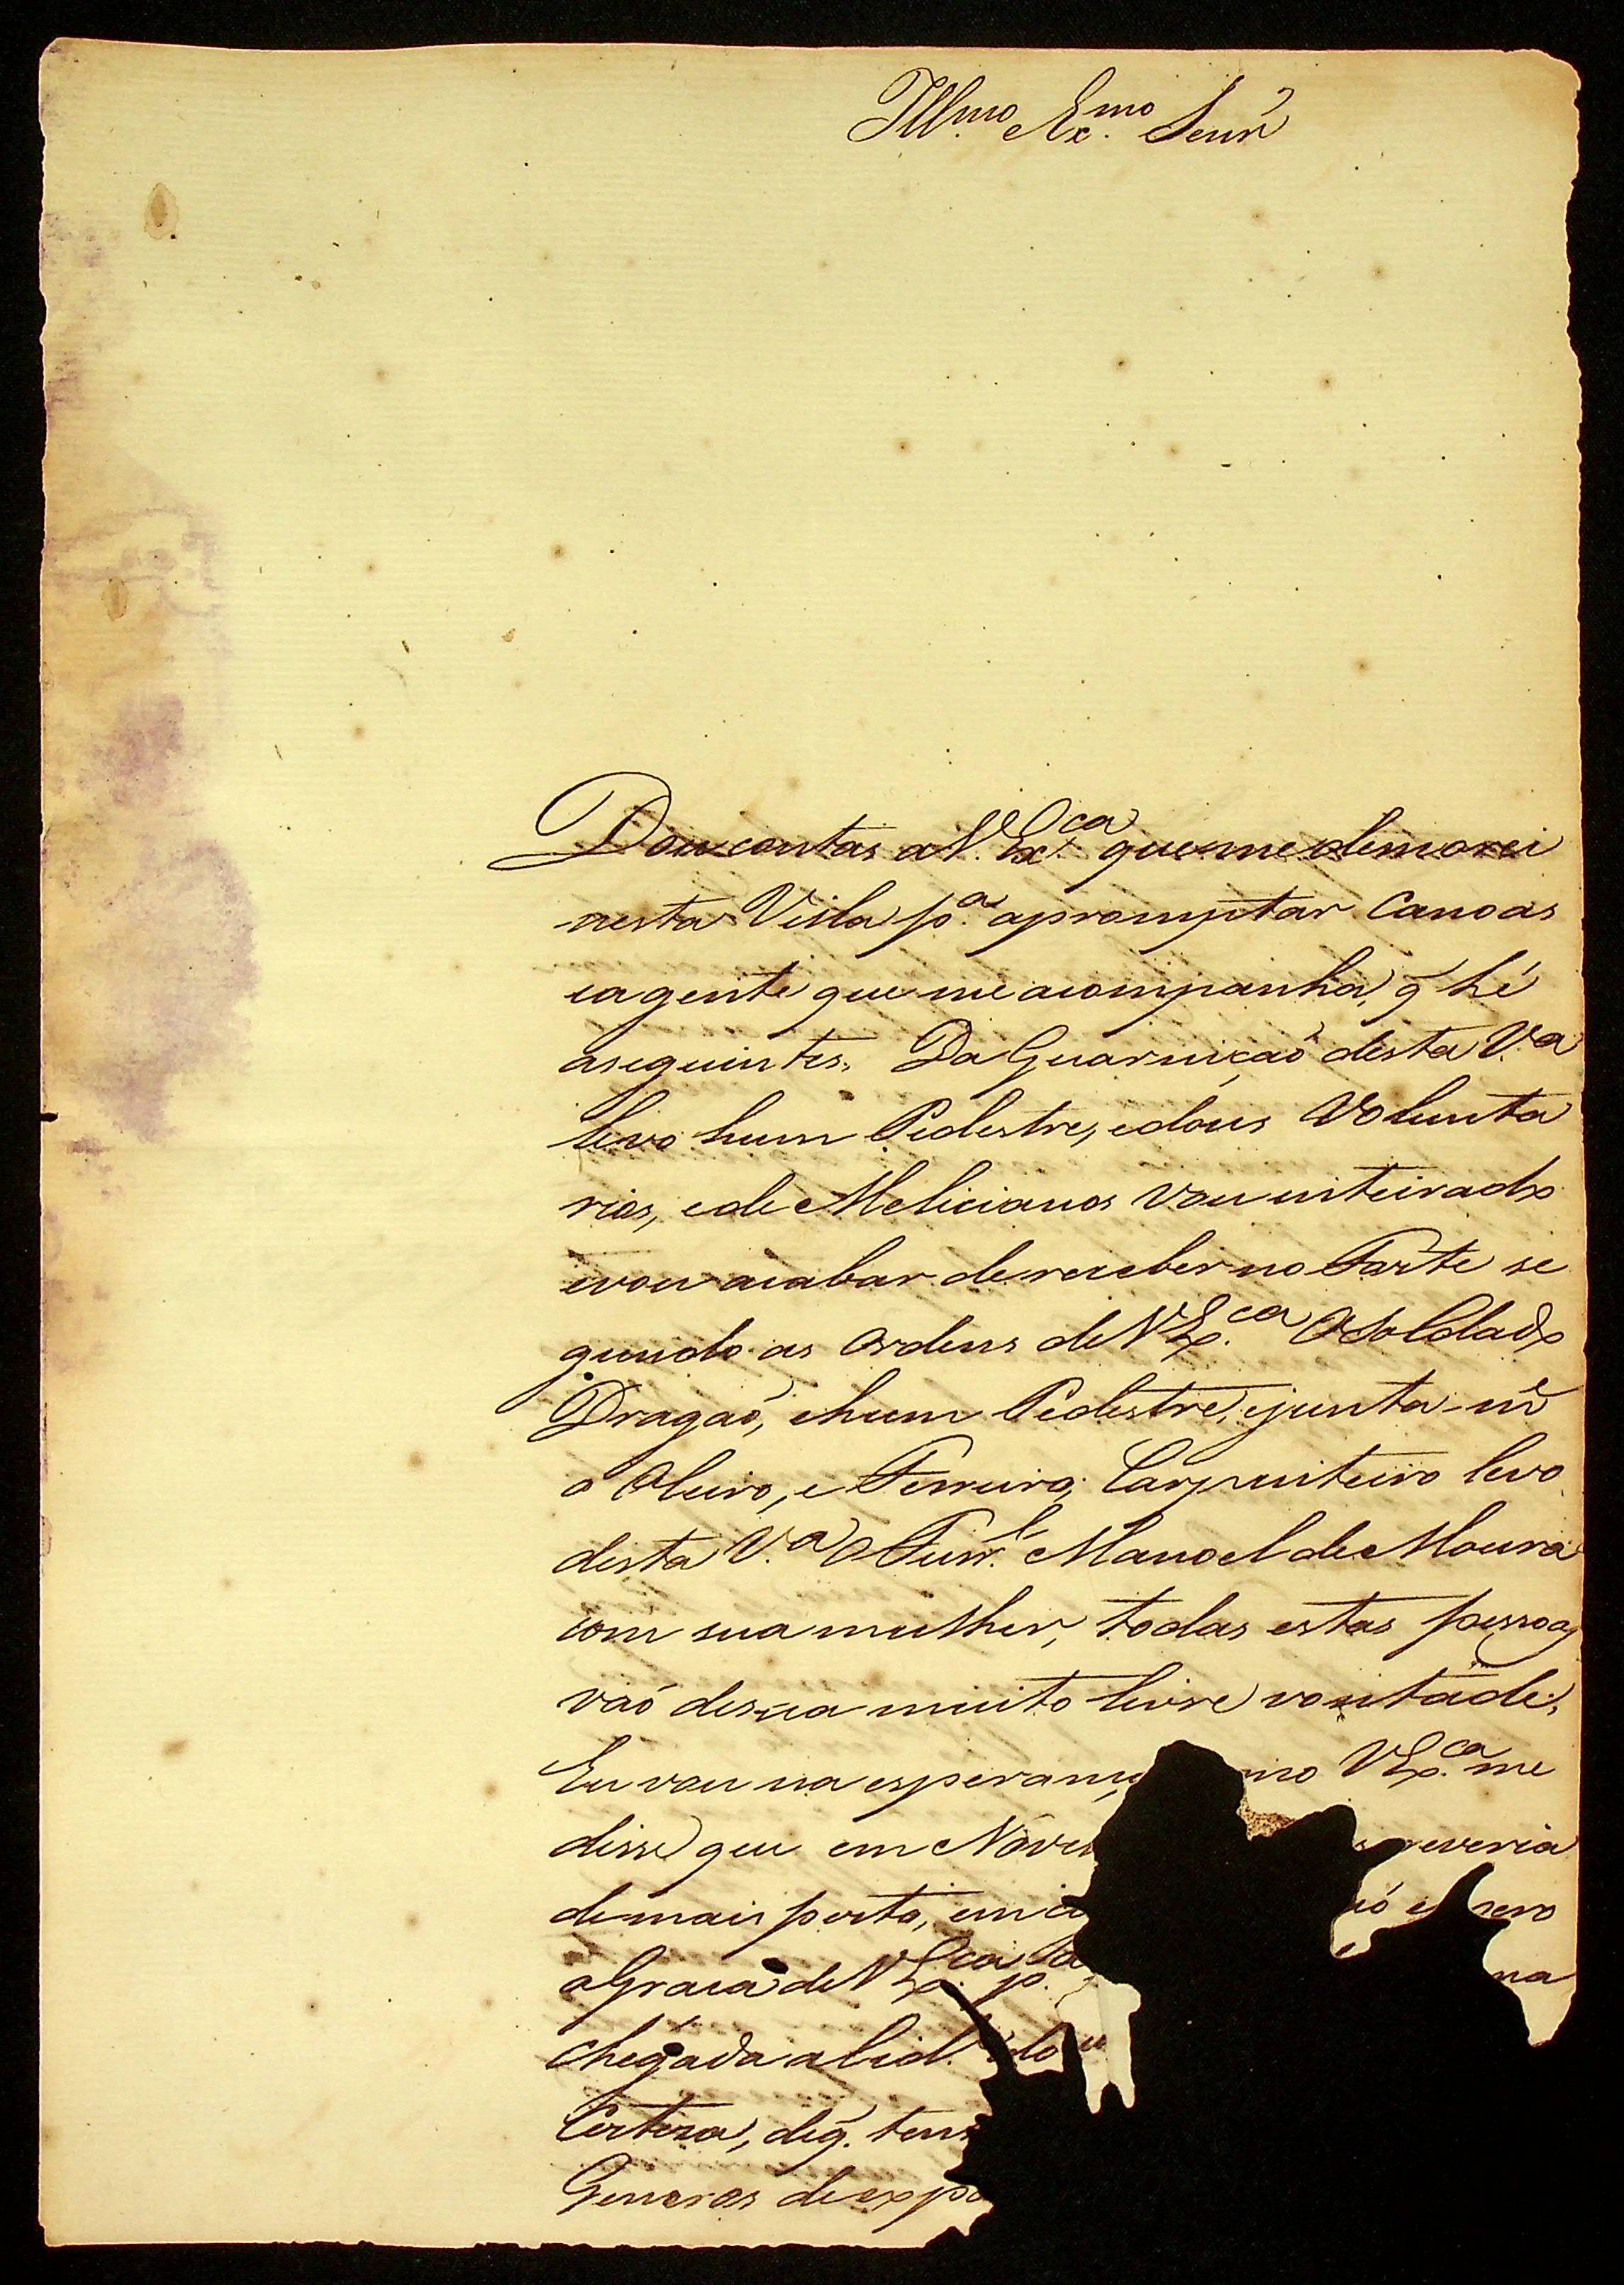 Ill.mo Ex.mo Senr
Dou contas a V. Ex.ca que me demorei
nesta Villa p.a apromptar Canoas
ea gente que me acompanha, q̃ hé
aseguintes. Da Guarniçaõ desta V.a
levo hum Pedestre, edous Volunta
rios, ede Melicianos vou inteirado
evou acabar de receber no Forte se
gundo as Ordens de V Ex.ca O Soldado
Dragaõ, ehum Pedestre, ejunta-m.e
o Oleiro, e Ferreiro, Carpinteiro levo
desta V.a O Furr.l Manoel de Moura
com sua mulher, todas estas pessoas
vaõ desua muito livre vontade,
Eu vou na esperanç mo V Ex.ca me
disse que em Nove reveria
de mais perto, em c ió es pero
aGraca de V Ex.ca p.a na
chegada a Cid.e do
Certeza, deq̃. ten
Generos de exp